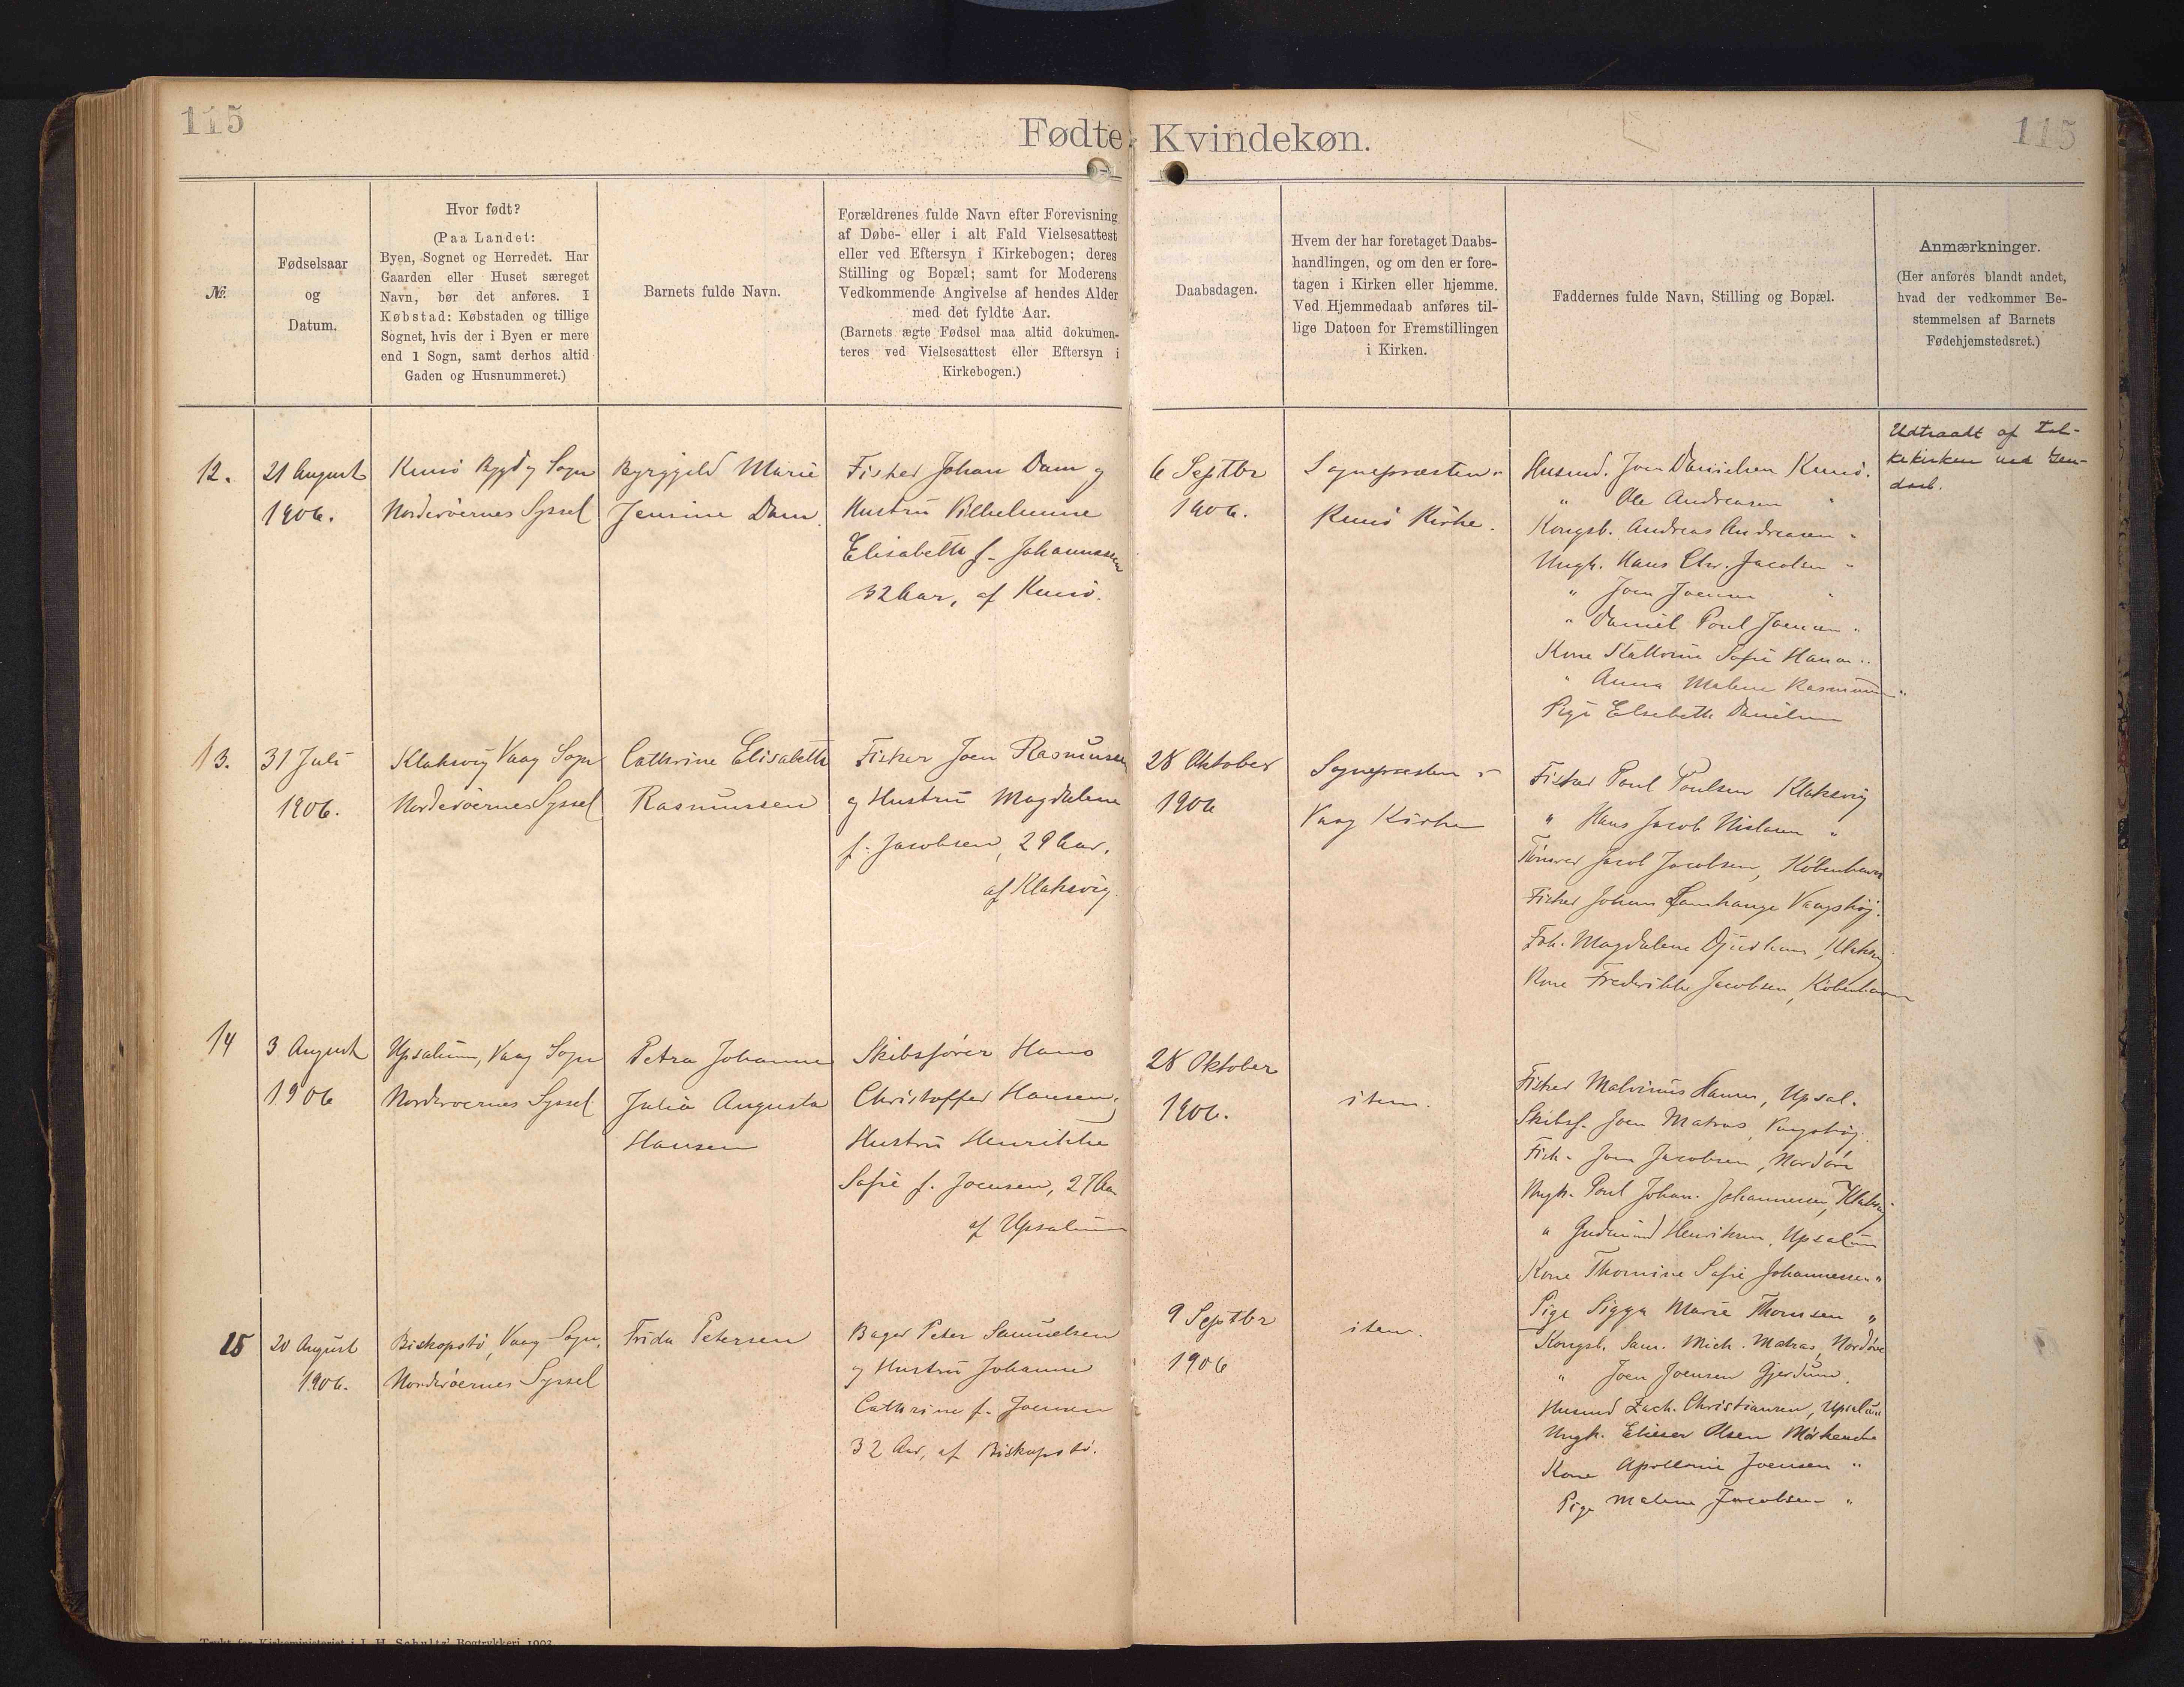 115
Fødte Kvindekøn.
115
№.
Fødselsaar
og
Datum.
Hvor født?
(Paa Landet:
Byen, Sognet og Herredet. Har
Gaarden eller Huset særeget
Navn, bør det anføres. I
Købstad: Købstaden og tillige
Sognet, hvis der i Byen er mere
end 1 Sogn, samt derhos altid
Gaden og Husnummeret.)
Barnets fulde Navn.
Forældrenes fulde Navn efter Forevisning
af Døbe- eller i alt Fald Vielsesattest
eller ved Eftersyn i Kirkebogen; deres
Stilling og Bopæl; samt for Moderens
Vedkommende Angivelse af hendes Alder
med det fyldte Aar.
(Barnets ægte Fødsel maa altid dokumen-
teres ved Vielsesattest eller Eftersyn i
Kirkebogen.)
Daabsdagen.
Hvem der har foretaget Daabs-
handlingen, og om den er fore-
tagen i Kirken eller hjemme.
Ved Hjemmedaab anføres til-
lige Datoen for Fremstillingen
i Kirken.
Faddernes fulde Navn, Stilling og Bopæl.
Anmærkninger.
(Her anføres blandt andet,
hvad der vedkommer Be-
stemmelsen af Barnets
Fødehjemstedsret.)
12.
21 August
1906.
Kunö Bygd og Sogn
Norderöernes Syssel
Byrgjyld Marie
Jensine Dam.
Fisker Johan Dam og
Hustru Vilhelmine
Elisabeth f. Johannessen
32 Aar, af Kunö.
6 Septbr
1906.
Sognepræsten
Kunö Kirke.
Husmd. Joen Danielsen Kunö.
" Ole Andreasen "
Kongsb. Andreas Andreasen "
Ungk. Hans Chr. Jacobsen "
" Joen Joensen "
" Daniel Poul Joensen "
Kone Sofie Hansen "
" Anna Malene Rasmussen "
Pige Elsebeth Danielsen
Udtraadt af Fol-
kekirken ved Gen-
daab.
13.
31 Juli
1906.
Klaksvig Vaag Sogn
Norderöernes Syssel
Cathrine Elisabeth
Rasmussen
Fisker Joen Rasmussen
og Hustru Magdalene
f. Jacobsen, 29 Aar,
af Klaksvig.
28 Oktober
1906
Sognepræsten
Vaag Kirke
Fisker Poul Poulsen Klaksvig
" Hans Jacob "
Tömrer Jacob Jacobsen, København
Fisker Johan Vaagshöj.
Magdalene Klaksvig
Kone Frederikke Jacobsen, København
14
3 August
1906
Upsalum, Vaag Sogn
Norderöernes Syssel
Petra Johanne
Julia Augusta
Hansen
Skibsfører Hans
Christoffer Hansen,
Hustru Henrikke
Sofie f. Joensen, 27 Aar
af Upsalum
28 Oktober
1906.
item.
Fisker Malvinus Hansen, Upsal.
Skibsf. Joen Matras, Vaagshöj.
Fisk. Joen Jacobsen, Nordöre
Ungk. Poul Johan. Johannesen, Klaksvig
" Gudmund Henriksen, Upsalum
Kone Thomine Sofie Johannessen "
Pige Sigga Marie Thomsen "
15
20 August
1906.
Biskopstö, Vaag Sogn,
Norderöernes Syssel
Frida Petersen
Bager Peter Samuelsen
og Hustru Johanne
Cathrine f. Joensen
32 Aar, af Biskopstö.
9 Septbr
1906
item.
Kongsb. Sam. Mich. Matras, Nordöre
" Joen Joensen Gjerdum.
Husmd Zach. Christiansen, Upsalum
Ungk. Elieser Olsen
Kone Apollonie Joensen "
Pige Malene Jacobsen "
Trykt for Kirkeministeriet i J. H. Schultz' Bogtrykkeri 1903